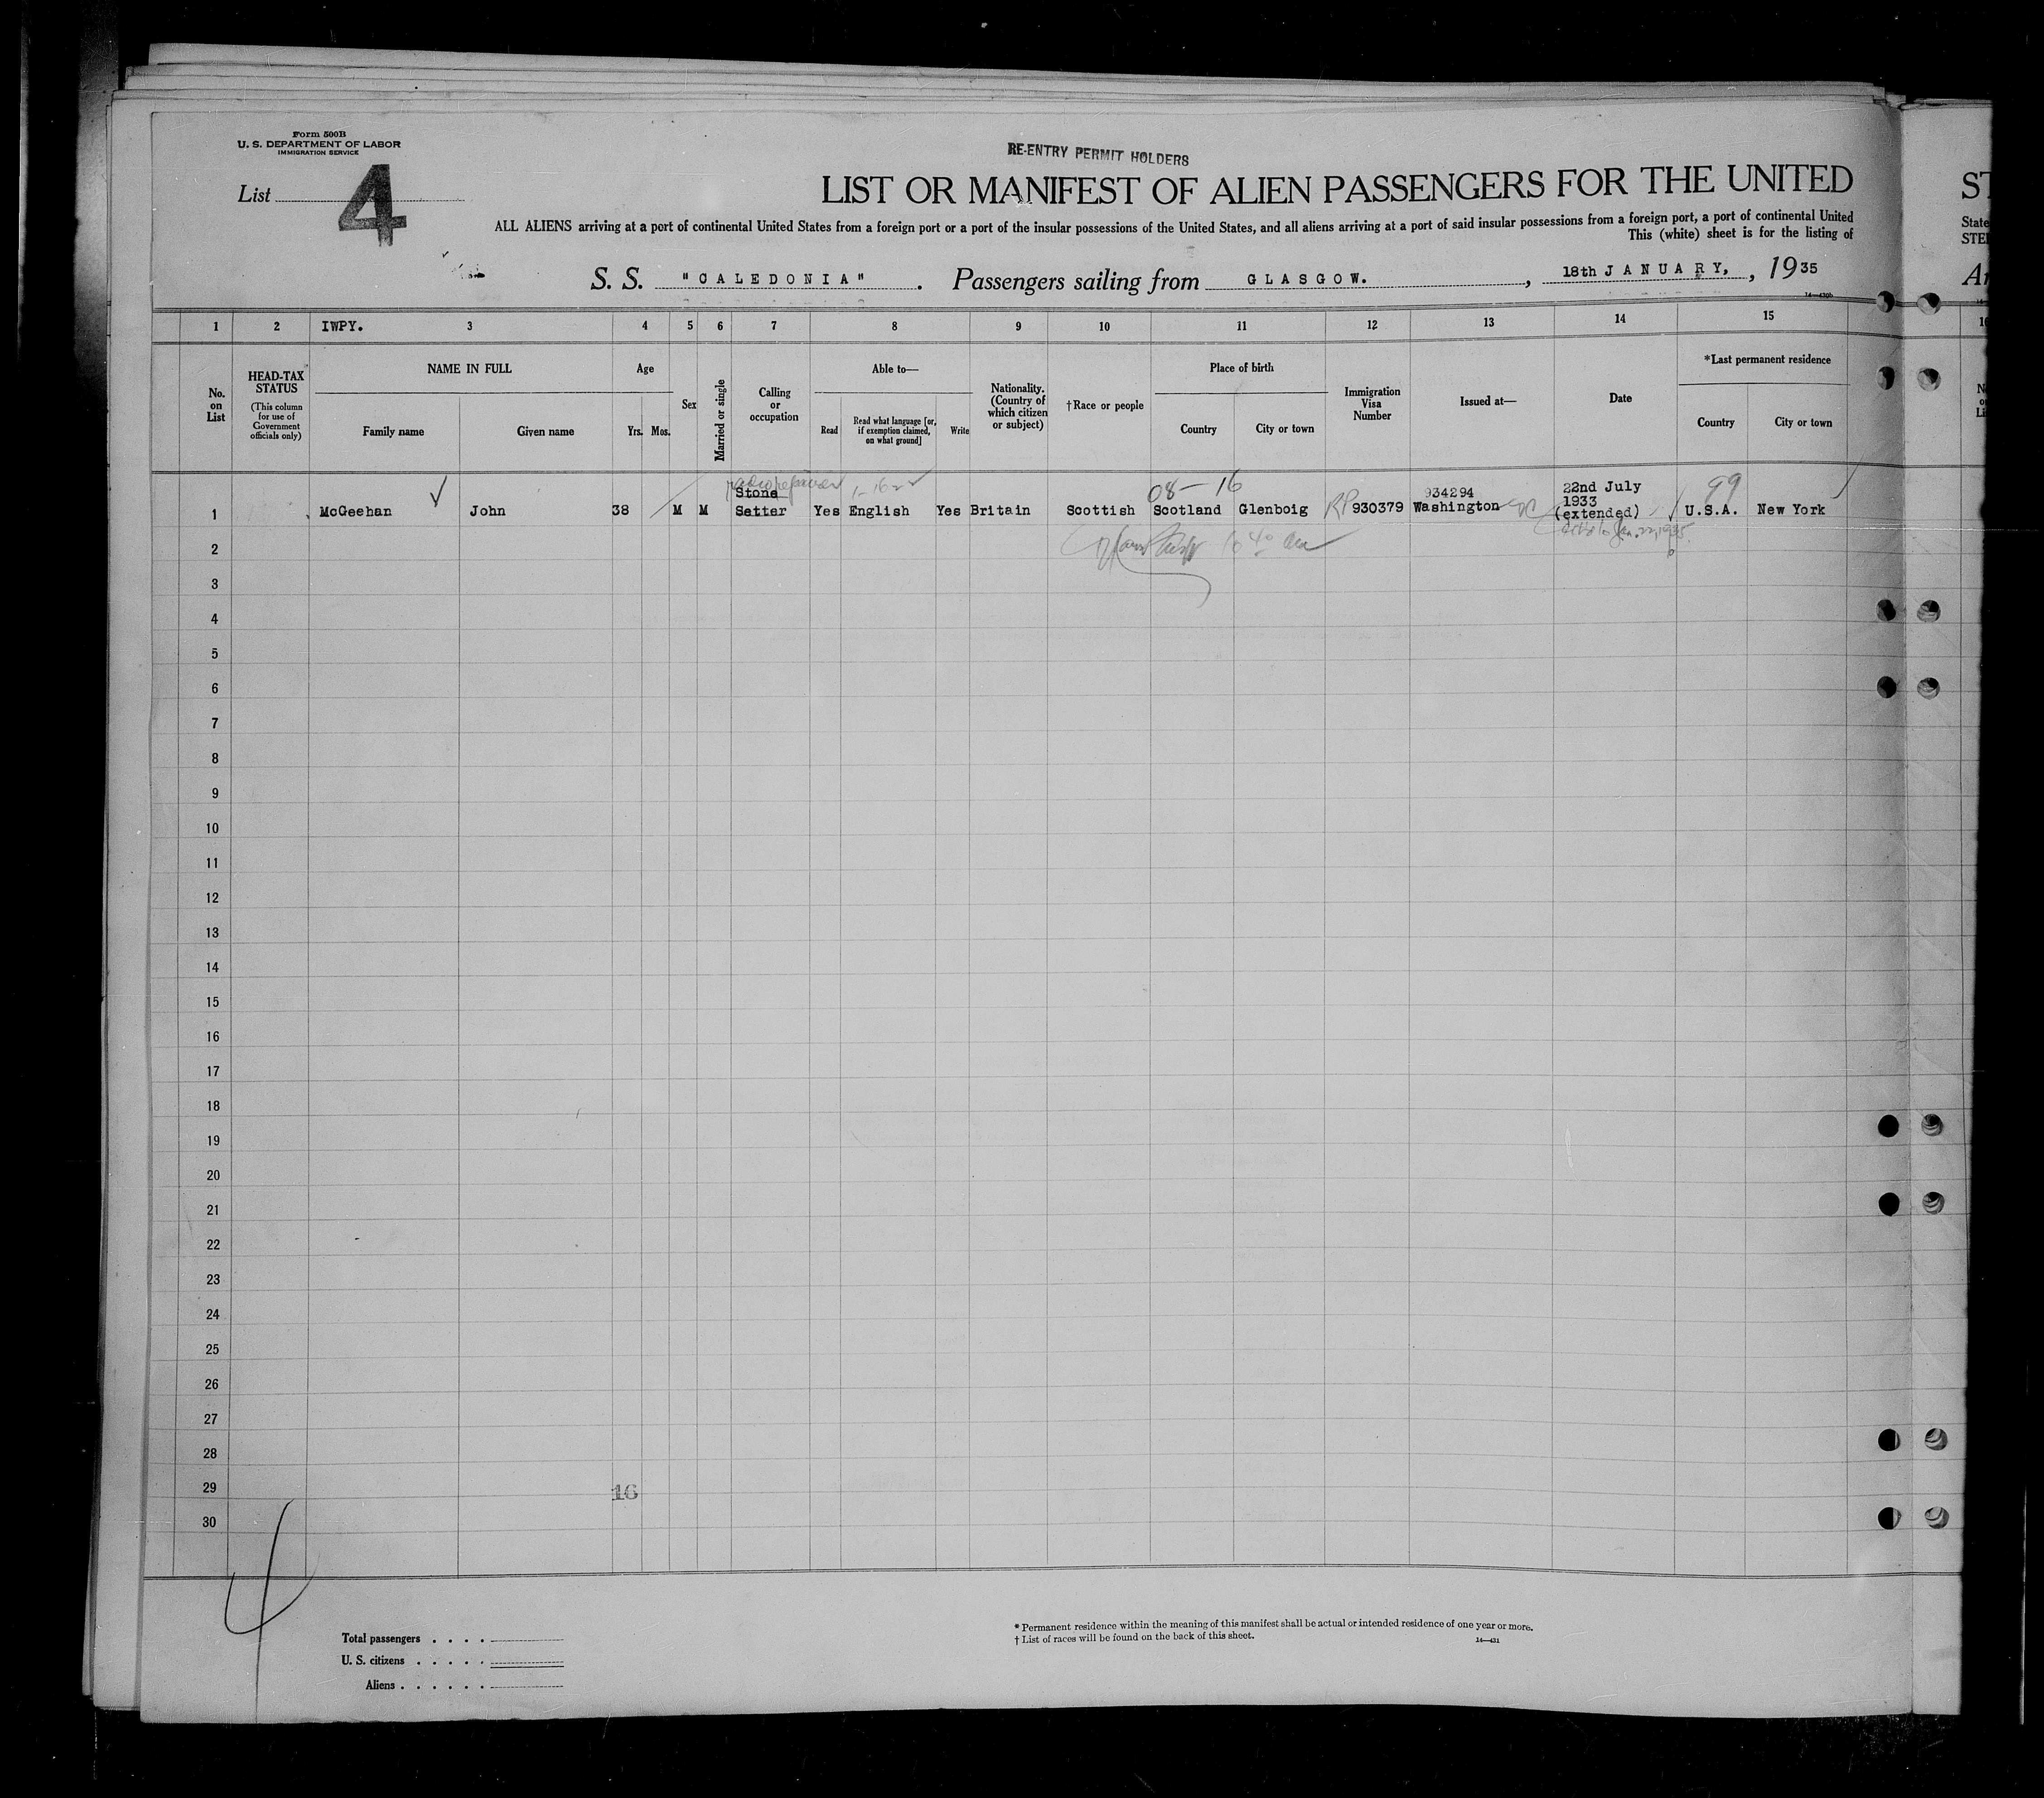 Form 500B
U. S. DEPARTMENT OF LABOR
IMMIGRATION SERVICE
List 4
RE-ENTRY PERMIT HOLDERS
LIST OR MANIFEST OF ALIEN PASSENGERS FOR THE UNITED
ST
ALL ALIENS arriving at a port of continental United States from a foreign port or a port of the insular possessions of the United States, and all aliens arriving at a port of said insular possessions from a foreign port, a port of continental United
State
This (white) sheet is for the listing of
STE
S. S. "CALEDONIA". Passengers sailing from GLASGOW. , 18th JANUARY, , 1935
14—430b
1 2 IWPY. 3 4 5 6 7 8 9 10 11 12 13 14 15
No. on List
HEAD-TAX STATUS
(This column for use of Government officials only)
NAME IN FULL
Family name Given name
Age
Yrs. Mos.
Sex
Married or single
Calling or occupation
Able to—
Read
Read what language [or, if exemption claimed, on what ground]
Write
Nationality. (Country of which citizen or subject)
†Race or people
Place of birth
Country City or town
Immigration Visa Number
Issued at—
Date
*Last permanent residence
Country City or town
08—16
99
Stone 934294 22nd July
1933
1 McGeehan John 38 M M Setter Yes English Yes Britain Scottish Scotland Glenboig RP 930379 Washington DC (extended) U.S.A. New York
2
3
4
5
6
7
8
9
10
11
12
13
14
15
16
17
18
19
20
21
22
23
24
25
26
27
28
29 16
30
4
Total passengers . . . .
U. S. citizens . . . . .
Aliens . . . . . .
* Permanent residence within the meaning of this manifest shall be actual or intended residence of one year or more.
† List of races will be found on the back of this sheet.
14—431